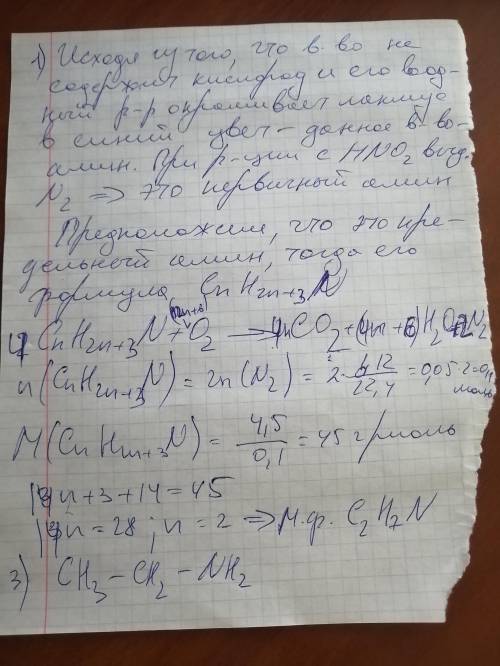 1) Исходя из того, что в-во не
содержит кислород и его вод-
ный р-р окрашивает лакмус
в синий цвет – данное в-во-
амин. При р-ции с HNO2 выд.
N2 => это первичный амин
Предположим, что это пре-
дельный амин, тогда его
формула CnH2n+3N
4CnH2n+3N + (6n+3)O2 → 4nCO2 + (4n+6)H2O+2N2
n(CnH2n+3N) = 2n(N2) = 2· 1,12/22,4 = 0,05·2=0,1 моль
M(CnH2n+3N) = 4,5/0,1 = 45 г/моль
14n+3+14=45
14n=28; n=2 => М.ф. C2H7N
3) CH3–CH2–NH2